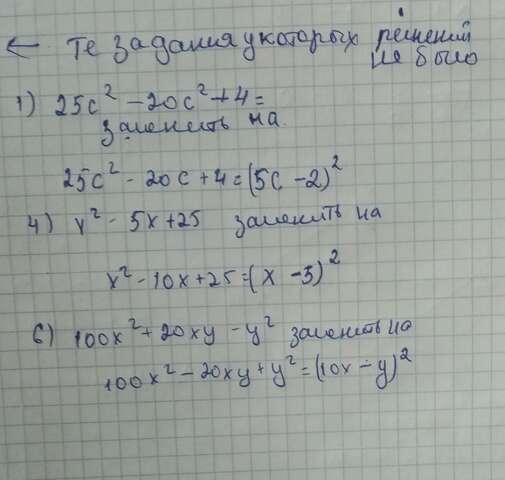 ← Те задания у которых решений
не было
1) 25c² - 20c² + 4 =
заменить на
25c² - 20c + 4 = (5c - 2)²
4) x² - 5x + 25 заменить на
x² - 10x + 25 = (x - 5)²
6) 100x² + 20xy - y² заменить на
100x² - 20xy + y² = (10x - y)²